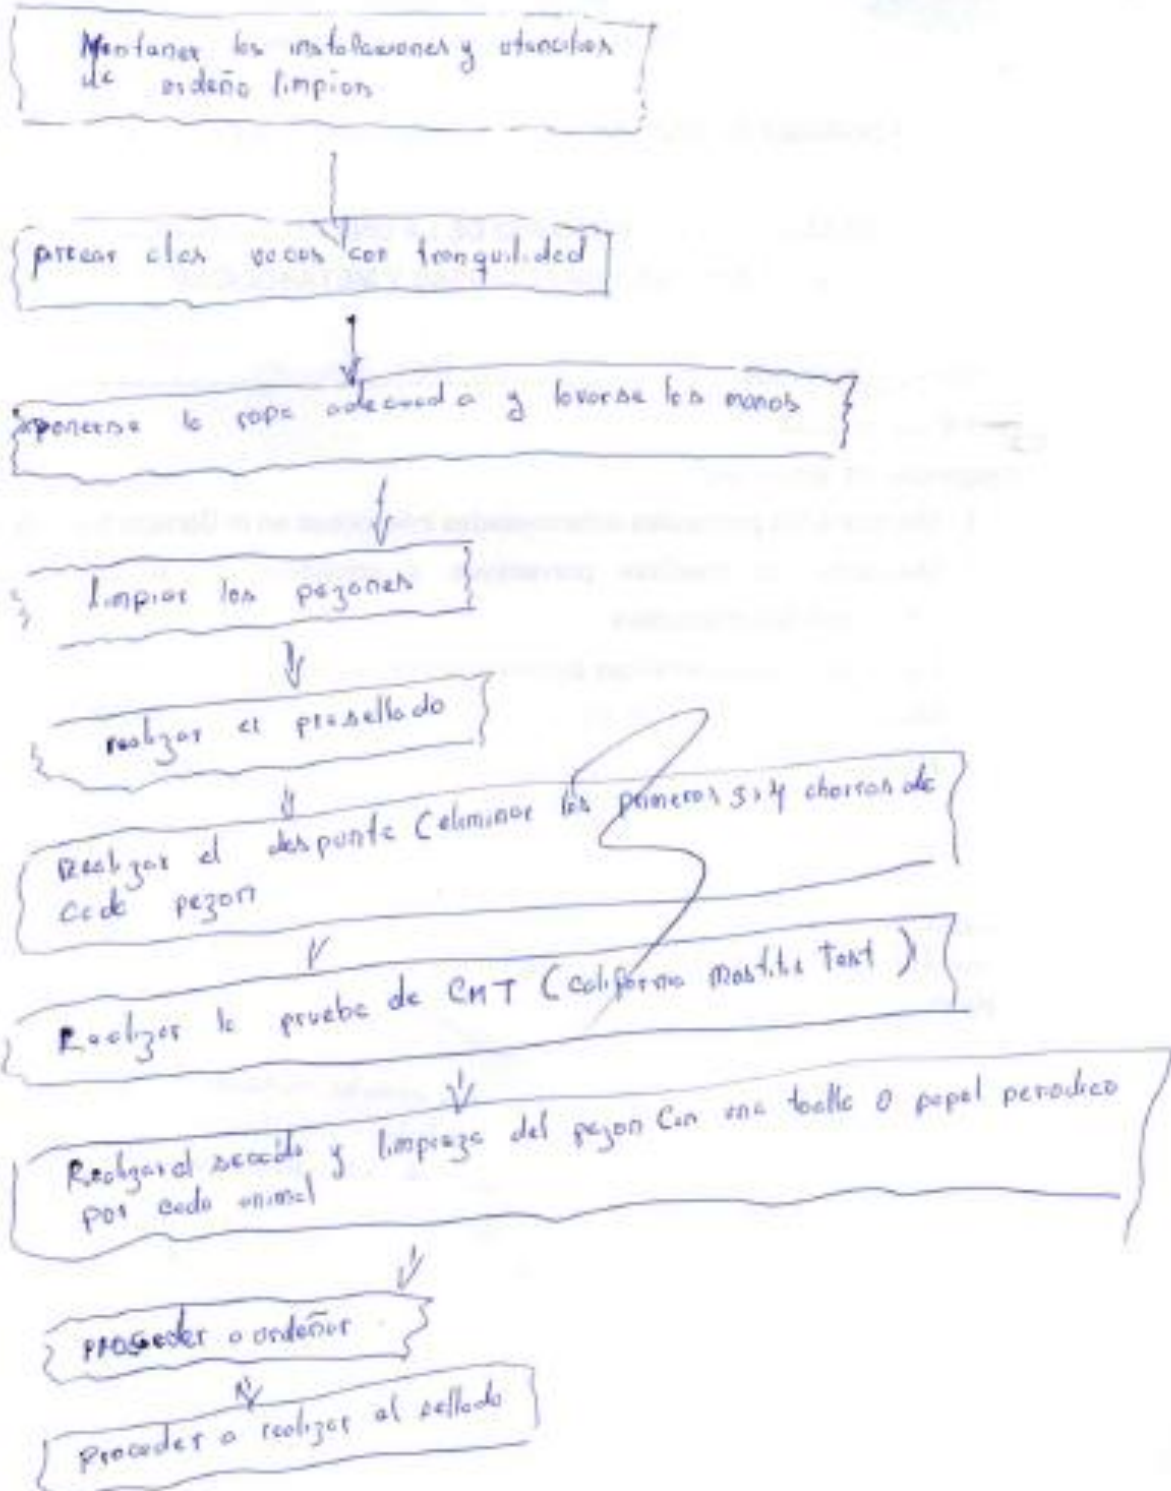 Mantaner las instalaciones y utencilios
de ordeño limpios
arrear a las vacas con tranquilidad
ponerse la ropa adecuada y lavarse las manos
limpiar los pezones
realizar el presellado
Realizar el despunte (eliminar los primeros 3 y 4 chorros de
cada pezon
Realizar la prueba de CMT (California Mastitis Test)
Realizar el secado y limpieza del pezon Con una toalla o papel periodico
por cada animal
proseder a ordeñar
proceder a realizar al sellado